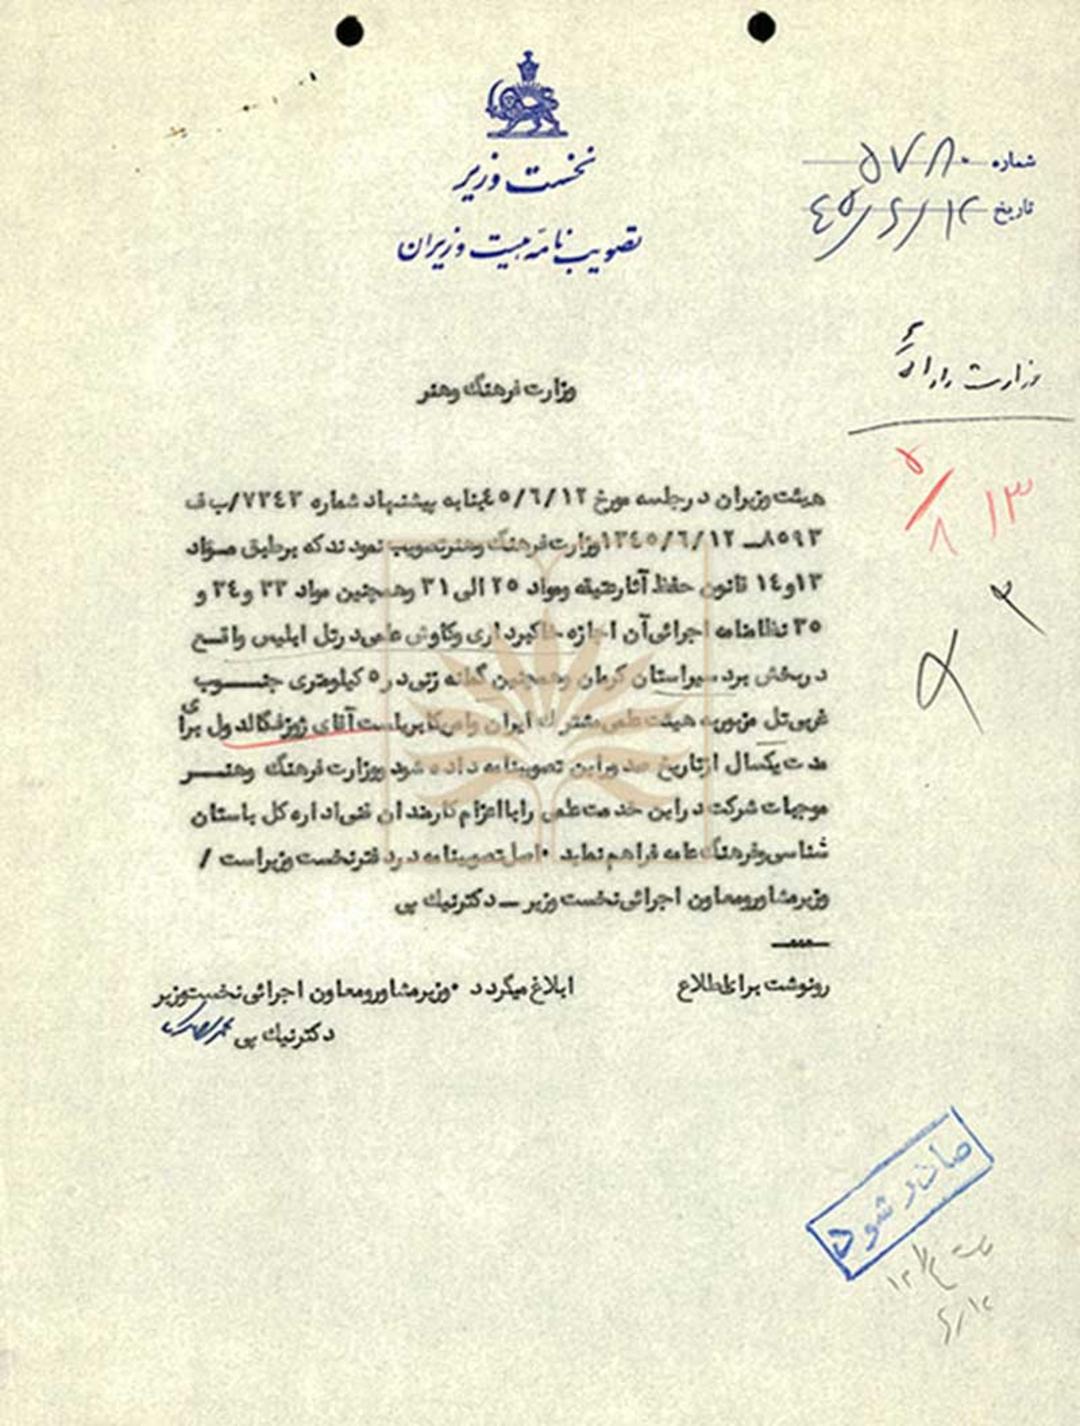 نخست وزیر
تصویب نامه هیئت وزیران
شماره ۵۷۸۰
تاریخ ۴۵/۶/۱۲
وزارت دارائی
وزارت فرهنگ وهنر
هیئت وزیران درجلسه مورخ ۴۵/۶/۱۲بنابه پیشنهاد شماره ۷۳۴۳/ب ف
۸۵۹۳ــ ۱۳۴۵/۶/۱۲وزارت فرهنگ وهنرتصویب نمودندکه برطبق مواد
۱۳و۱۴ قانون حفظ آثارعتیقه ومواد ۲۵ الی ۳۱ وهمچنین مواد ۳۳ و۳۴ و
۳۵ نظامنامه اجرائی آن اجازه خاکبرداری وکاوش علمی درتل ابلیس واقع
دربخش بردسیراستان کرمان وهمچنین گمانه زنی در۵ کیلومتری جنوب
غربی تل مزبوربه هیئت علمی مشترك ایران وامریکا بریاست آقای ژوزفگالدول برای
مدت یکسال ازتاریخ صدوراین تصویبنامه داده شود ووزارت فرهنگ وهنر
موجبات شرکت دراین خدمت علمی رابااعزام کارمندان فنی اداره کل باستان
شناسی وفرهنگ عامه فراهم نماید ۰اصل تصویبنامه دردفترنخست وزیراست /
وزیرمشاورومعاون اجرائی نخست وزیر ــ دکترنیك پی
رونوشت برای اطلاع ابلاغ میگردد ۰وزیرمشاورومعاون اجرائی نخست وزیر
دکترنیك پی
۸/۱۳
صادر شود
۶/۱۲